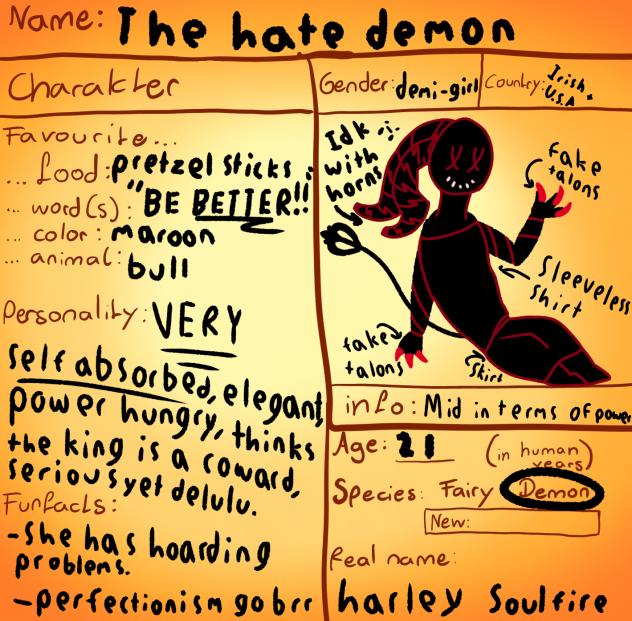 Name: The hate demon
Charakter
Gender: demi-girl
Country: Irish +
U.S.A
Favourite...
... food: pretzel sticks
... word(s): "BE BETTER!!
... color: maroon
... animal: bull
Personality: VERY
self absorbed, elegant,
power hungry, thinks
the king is a coward,
serious yet delulu.
Funfacts:
-She has hoarding
problems.
-perfectionism go brr
Idk
with
horns
fake
talons
Sleeveless
Shirt
fake
talons
info: Mid in terms of power
Age: 21 (in human
years)
Species: Fairy Demon
New:
Real name:
harley Soulfire